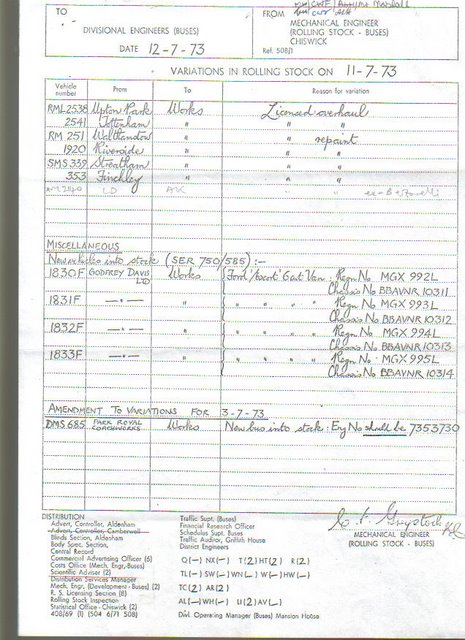 TO
FROM
DIVISIONAL ENGINEERS (BUSES)
MECHANICAL ENGINEER
(ROLLING STOCK - BUSES)
CHISWICK
DATE 12-7-73
Ref. 508/1
VARIATIONS IN ROLLING STOCK ON 11-7-73
Vehicle number From To Reason for variation
RML 2538 Upton Park Works Licensed overhaul
2541 Tottenham " " "
RM 251 Walthamstow " " repaint
1920 Riverside " " "
SMS 339 Streatham " " "
353 Finchley " " "
MISCELLANEOUS
New vehicles into stock (SER 750/585) :-
1830F GODFREY DAVIS LTD Works Ford 'Escort' 6 cwt Van : Regn No MGX 992L
Chassis No BBAVNR 10311
1831F —"— " " " " " Regn No MGX 993L
Chassis No BBAVNR 10312
1832F —"— " " " " " Regn No MGX 994L
Chassis No BBAVNR 10313
1833F —"— " " " " " Regn No MGX 995L
Chassis No BBAVNR 10314
AMENDMENT TO VARIATIONS FOR 3-7-73
DMS 685 PARK ROYAL COACHWORKS Works New bus into stock : Eng No should be 7353730
DISTRIBUTION
Advert. Controller, Aldenham
Advert. Controller, Camberwell
Blinds Section, Aldenham
Body Spec. Section,
Central Record
Commercial Advertising Officer (6)
Costs Office (Mech. Engr. Buses)
Scientific Adviser (2)
Distribution Services Manager
Mech. Engr. (Development - Buses) (2)
R. S. Licensing Section (8)
Rolling Stock Inspection
Statistical Office - Chiswick (2)
408/69 (1) (504 6/71 508)
Traffic Supt. (Buses)
Financial Research Officer
Schedules Supt. Buses
Traffic Auditor, Griffith House
District Engineers
Q (—) NX (—) T (2) HT (2) R (2)
TL (—) SW (—) WN (—) W (—) HW (—)
TC (2) AR (2)
AL (—) WH (—) U (2) AV (—)
Divl. Operating Manager (Buses) Mansion House
MECHANICAL ENGINEER
(ROLLING STOCK - BUSES)